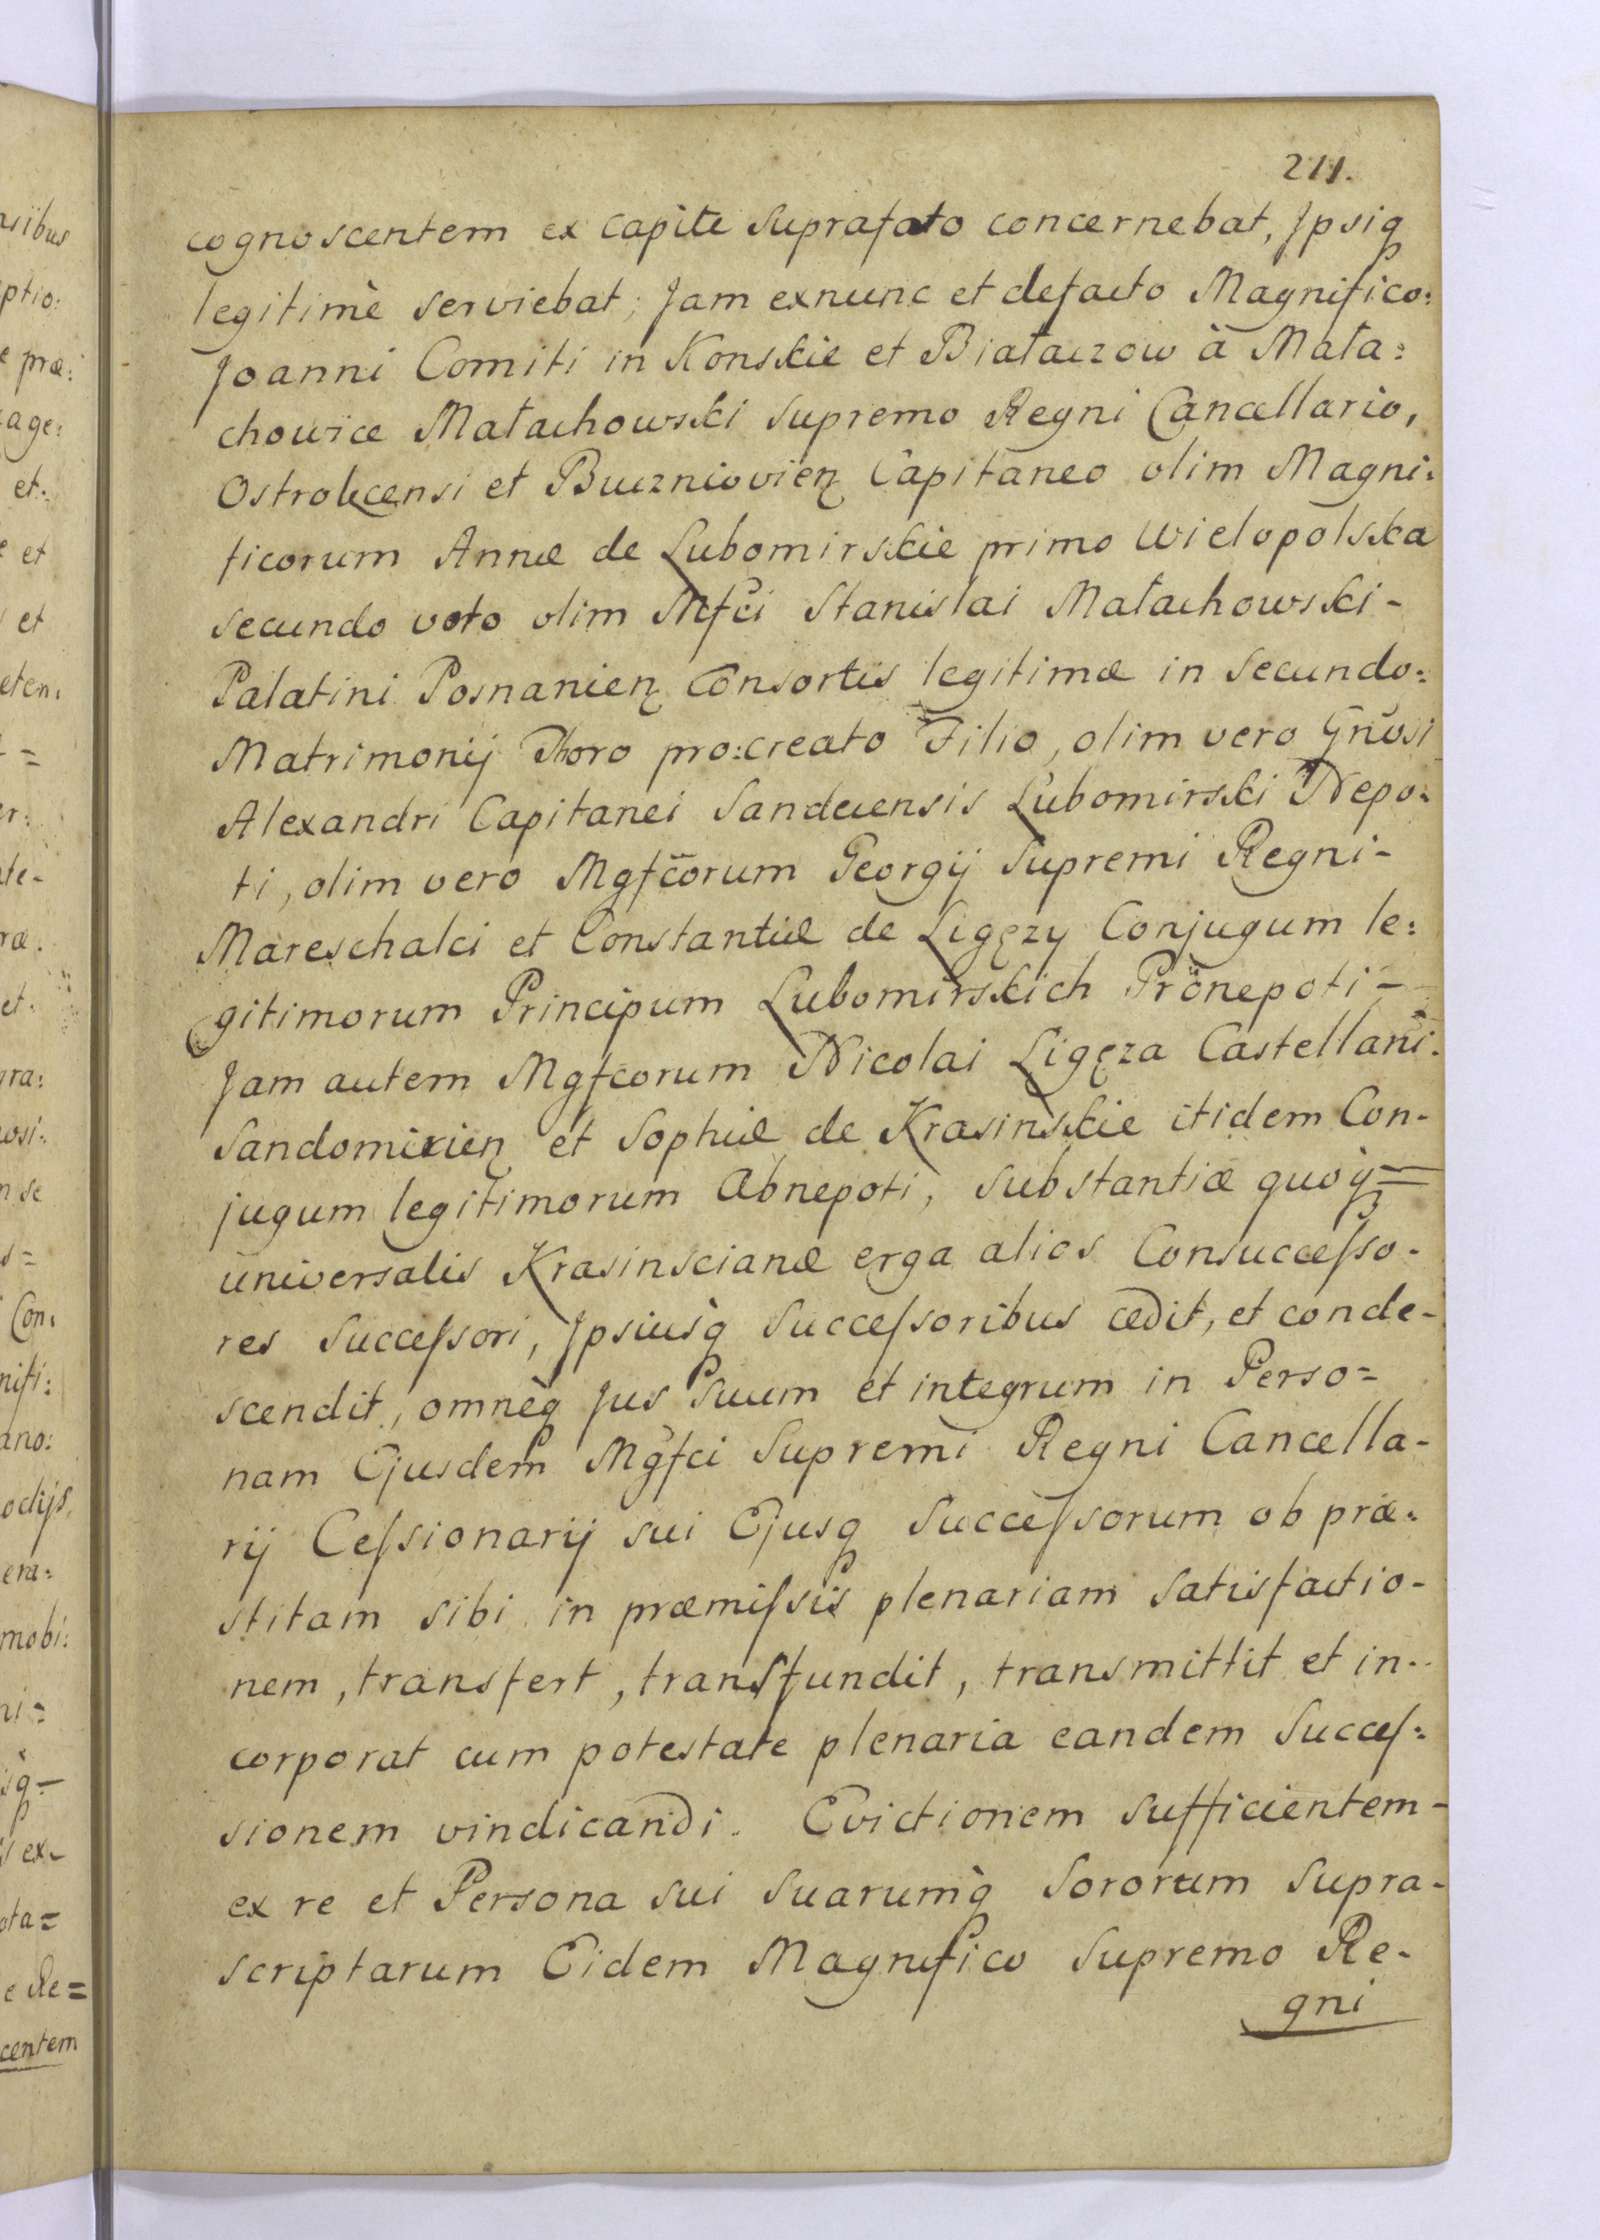 211.
cognoscentem ex Capite Suprafato concernebat, Jpsiq
legitimè serviebat; Jam exnunc et defacto Magnifico:
Joanni Comiti in Konskie et Białaczow à Mała:
chowice Małachowski Supremo Regni Cancellario,
Ostrolecensi et Buczniovien Capitaneo olim Magni:
ficorum Annæ de Lubomirskie primo Wielopolska
secundo voto olim Mfci Stanislai Małachowski-
Palatini Posnanien Consortis legitimæ in Secundo:
Matrimonij Thoro pro:creato Filio, olim vero Gnosi
Alexandri Capitanei Sandecensis Lubomirski Nepo:
ti, olim vero Mgfcorum Georgij Supremi Regni-
Mareschalci et Constantiæ de Ligęzy Conjugum le:
gitimorum Principum Lubomirskich Pronepoti-
Jam autem Mgfcorum Nicolai Ligęza Castellani.
Sandomirien et Sophiæ de Krasinskie itidem Con-
jugum legitimorum Abnepoti, Substantiæ quoq=
universalis Krasinscianæ erga alios Consuccesso-
res Successori, Jpsiusq Successoribus cedit, et conde-
scendit, omneq Jus Suum et integrum in Perso=
nam Ejusdem Mgfci Supremi Regni Cancella-
rij Cessionarij sui Ejusq Successorum ob præ:
stitam sibi in præmissis plenariam Satisfactio-
nem, transfert, transfundit, transmittit et in-
corporat cum potestate plenaria eandem Succes:
sionem vindicandi. Evictionem Sufficientem-
ex re et Persona sui Suarumq Sororum Supra-
scriptarum Eidem Magnifico Supremo Re-
gni